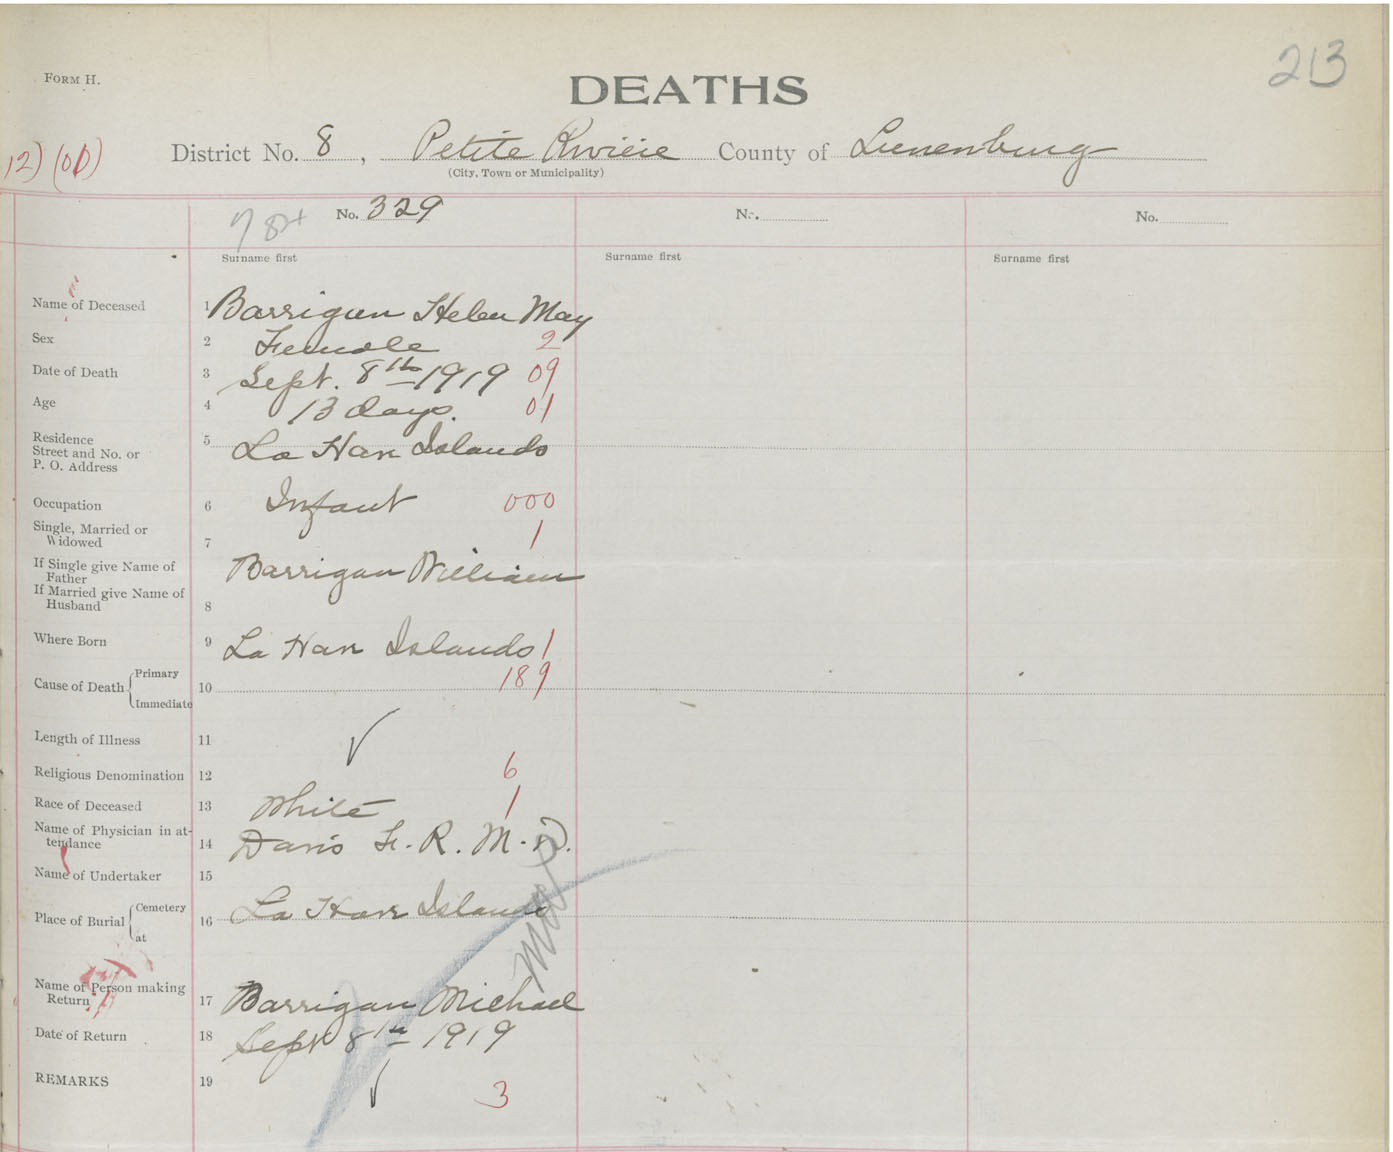 213
FORM H.
DEATHS
12) (01)
District No. 8, Petite Riviere County of Lunenburg
(City, Town or Municipality)
784 No. 329 No. No.
Surname first Surname first Surname first
Name of Deceased 1 Barrigan Helen May
Sex 2 Female 2
Date of Death 3 Sept. 8th 1919 09
Age 4 13 days. 01
Residence 5 La Have Islands
Street and No. or
P. O. Address
Occupation 6 Infant 000
Single, Married or
Widowed 7 1
If Single give Name of
Father Barrigan William
If Married give Name of
Husband 8
Where Born 9 La Have Islands 1
Primary 189
Cause of Death 10
Immediate
Length of Illness 11
Religious Denomination 12 6
Race of Deceased 13 White 1
Name of Physician in at-
tendance 14 Davis F. R. M.D.
Name of Undertaker 15
Cemetery
Place of Burial 16 La Have Islands
at
Name of Person making
Return 17 Barrigan Michael
Date of Return 18 Sept 8th 1919
REMARKS 19 3